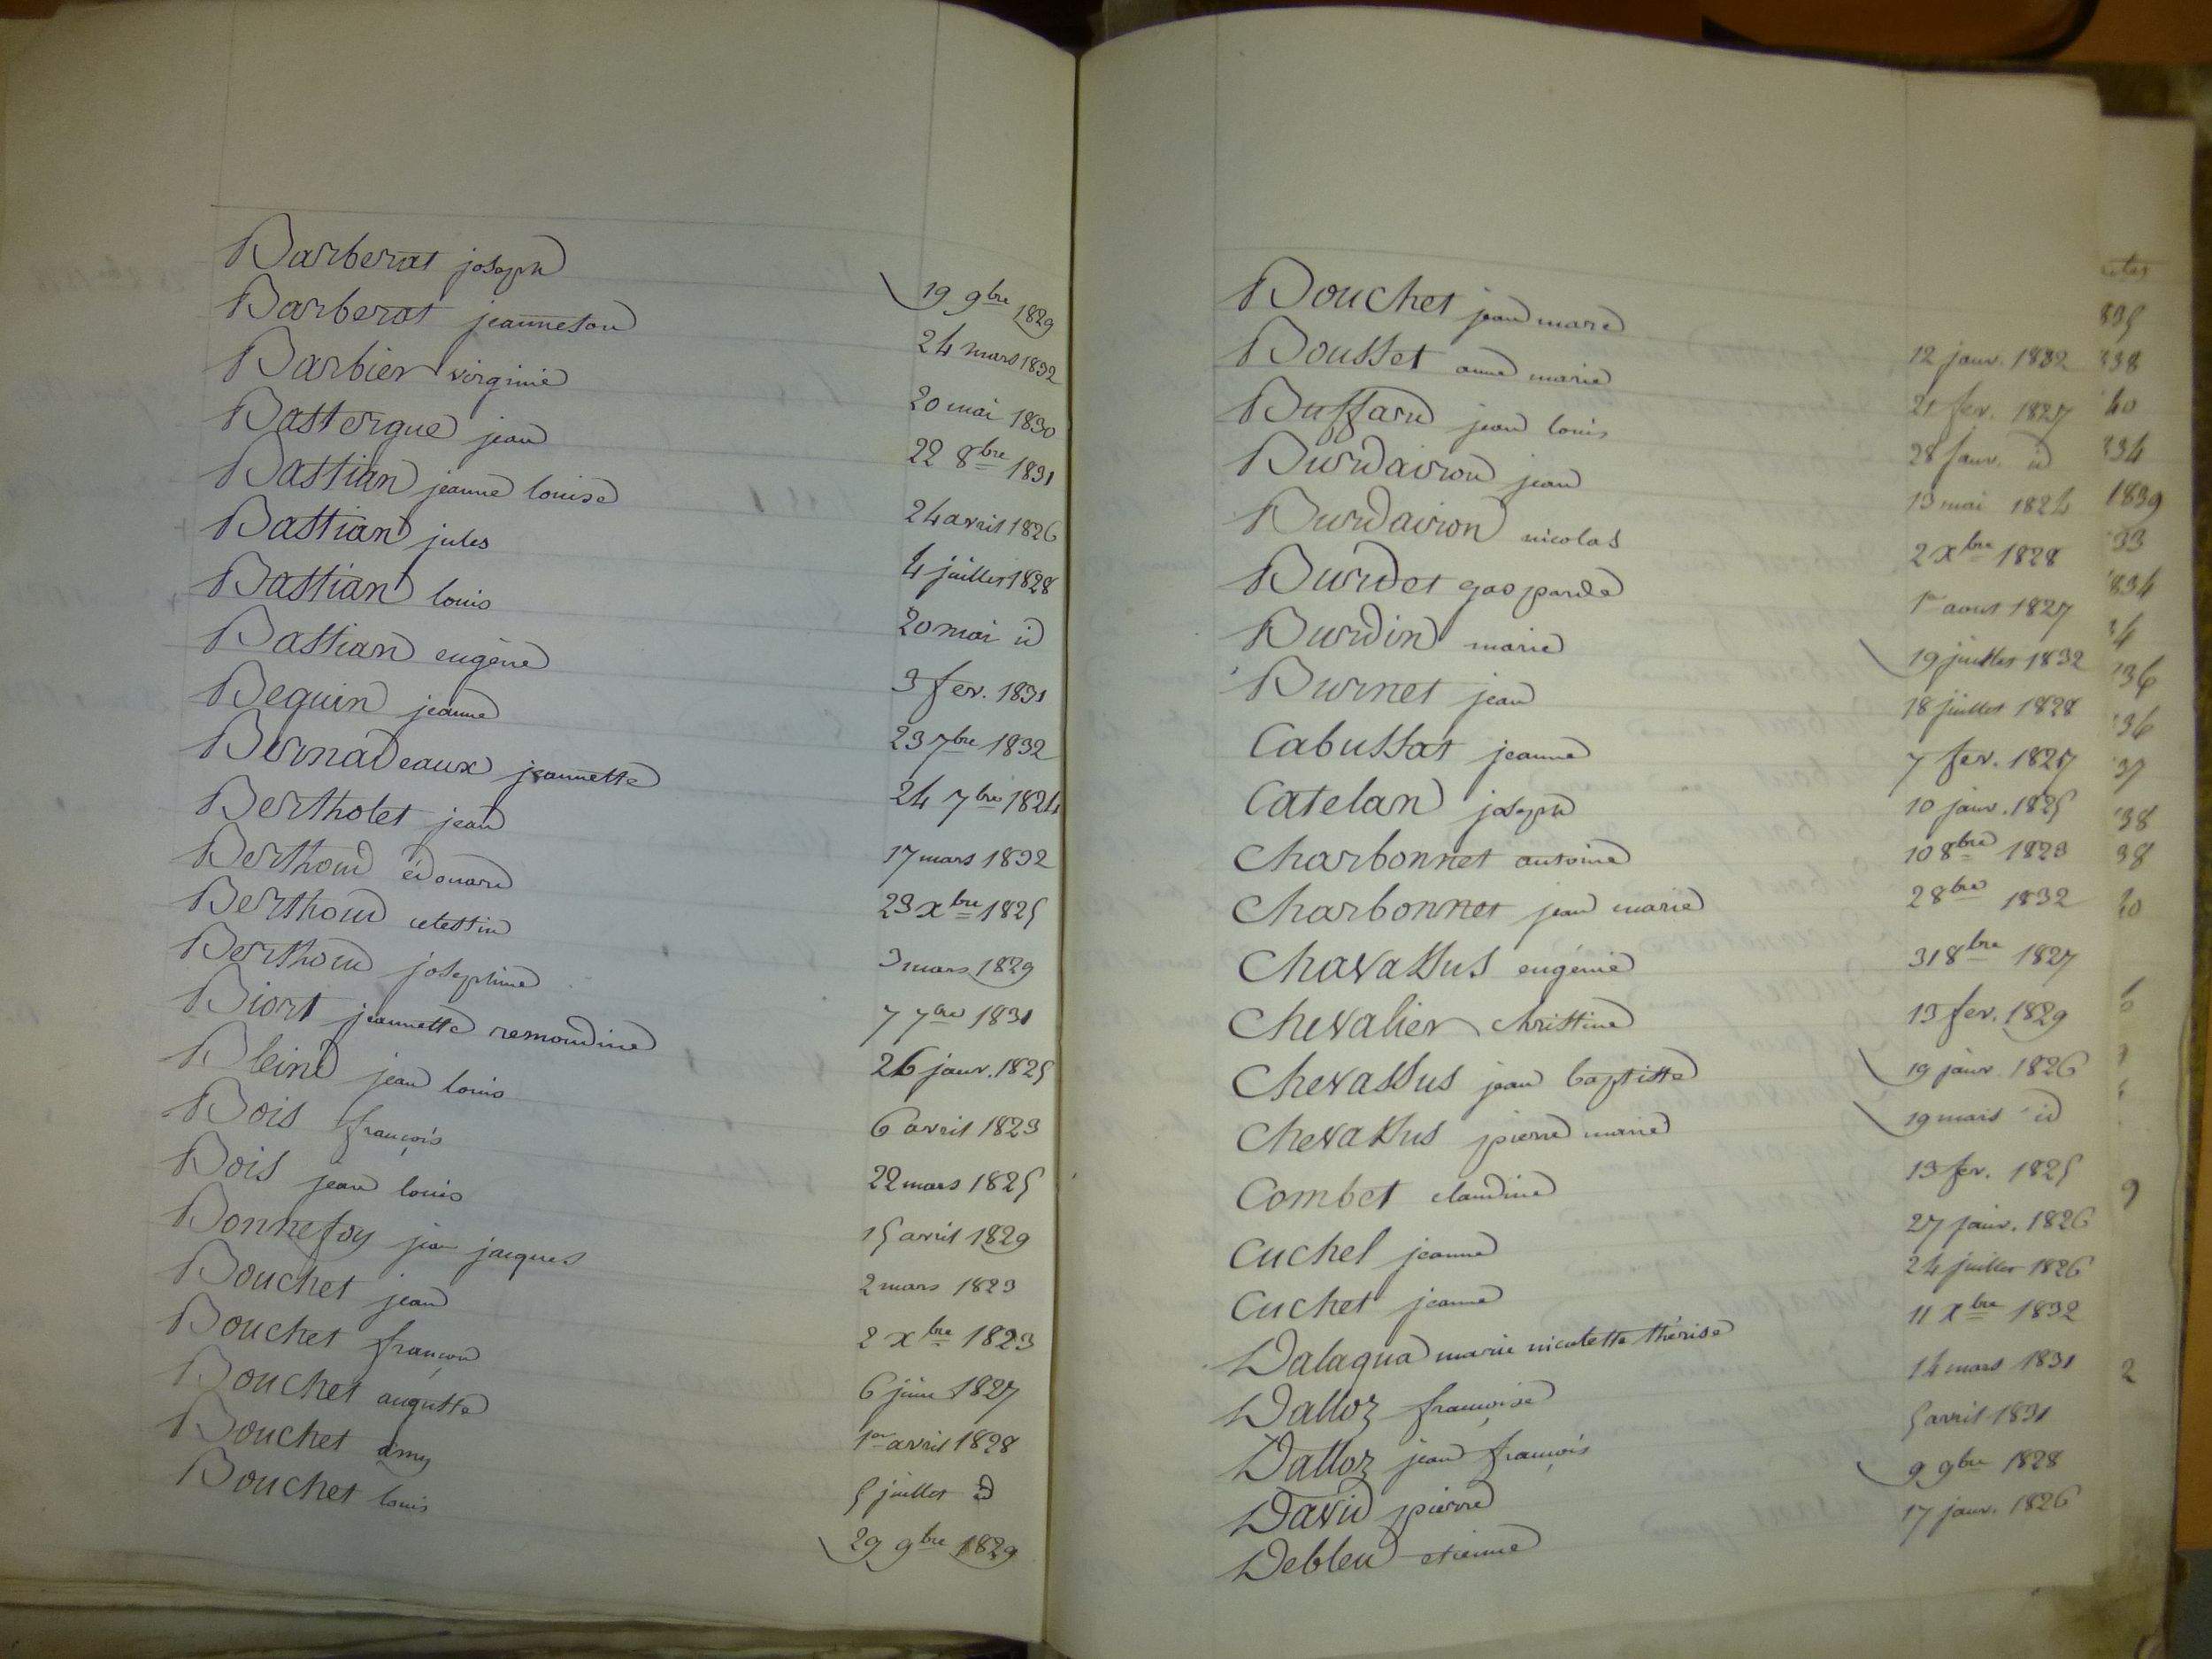 Barberat joseph 19 9bre 1829
Barberat jeanneton 24 mars 1832
Barbier virginie 20 mai 1830
Bastergue jean 22 8bre 1831
Bastian jeanne louise 24 avril 1826
Bastian jules 4 juillet 1828
Bastian louis 20 mai id
Bastian eugène 3 fev. 1831
Bequin jeanne 23 7bre 1832
Bernadeaux jeannette 24 7bre 1824
Bertholet jean 17 mars 1832
Berthoud édouard 23 xbre 1825
Berthoud celestin 3 mars 1829
Berthoud josephine 7 7bre 1831
Biort jeannette remondine 26 janv. 1825
Bleine jean louis 6 avril 1823
Bois françois 22 mars 1825
Bois jean louis 15 avril 1829
Bonnefoy jean jacques 2 mars 1823
Bouchet jean 2 xbre 1823
Bouchet françois 6 juin 1827
Bouchet auguste 1er avril 1828
Bouchet amy 5 juillet id
Bouchet louis 29 9bre 1829
Bouchet jean marie 12 janv. 1832
Bousset anne marie 21 fev. 1827
Buffard jean louis 28 janv. id
Burdairon jean 13 mai 1824
Burdairon nicolas 2 xbre 1828
Burdet gasparde 1er aout 1827
Burdin marie 19 juillet 1832
Burnet jean 18 juillet 1828
Cabussat jeanne 7 fev. 1827
Catelan joseph 10 janv. 1825
Charbonnet antoine 10 8bre 1823
Charbonnet jean marie 2 8bre 1832
Chavassus eugénie 31 8bre 1827
Chevalier christine 13 fev. 1829
Chevassus jean baptiste 19 janv. 1826
Chevassus pierre marie 19 mars id
Combet claudine 13 fev. 1825
Cuchet jeanne 27 janv. 1826
Cuchet jeanne 24 juillet 1826
Dalaqua marie nicolette thérise 11 xbre 1832
Dalloz françoise 14 mars 1831
Dalloz jean françois 5 avril 1831
David pierre 9 9bre 1828
Debleu etienne 17 janv. 1826